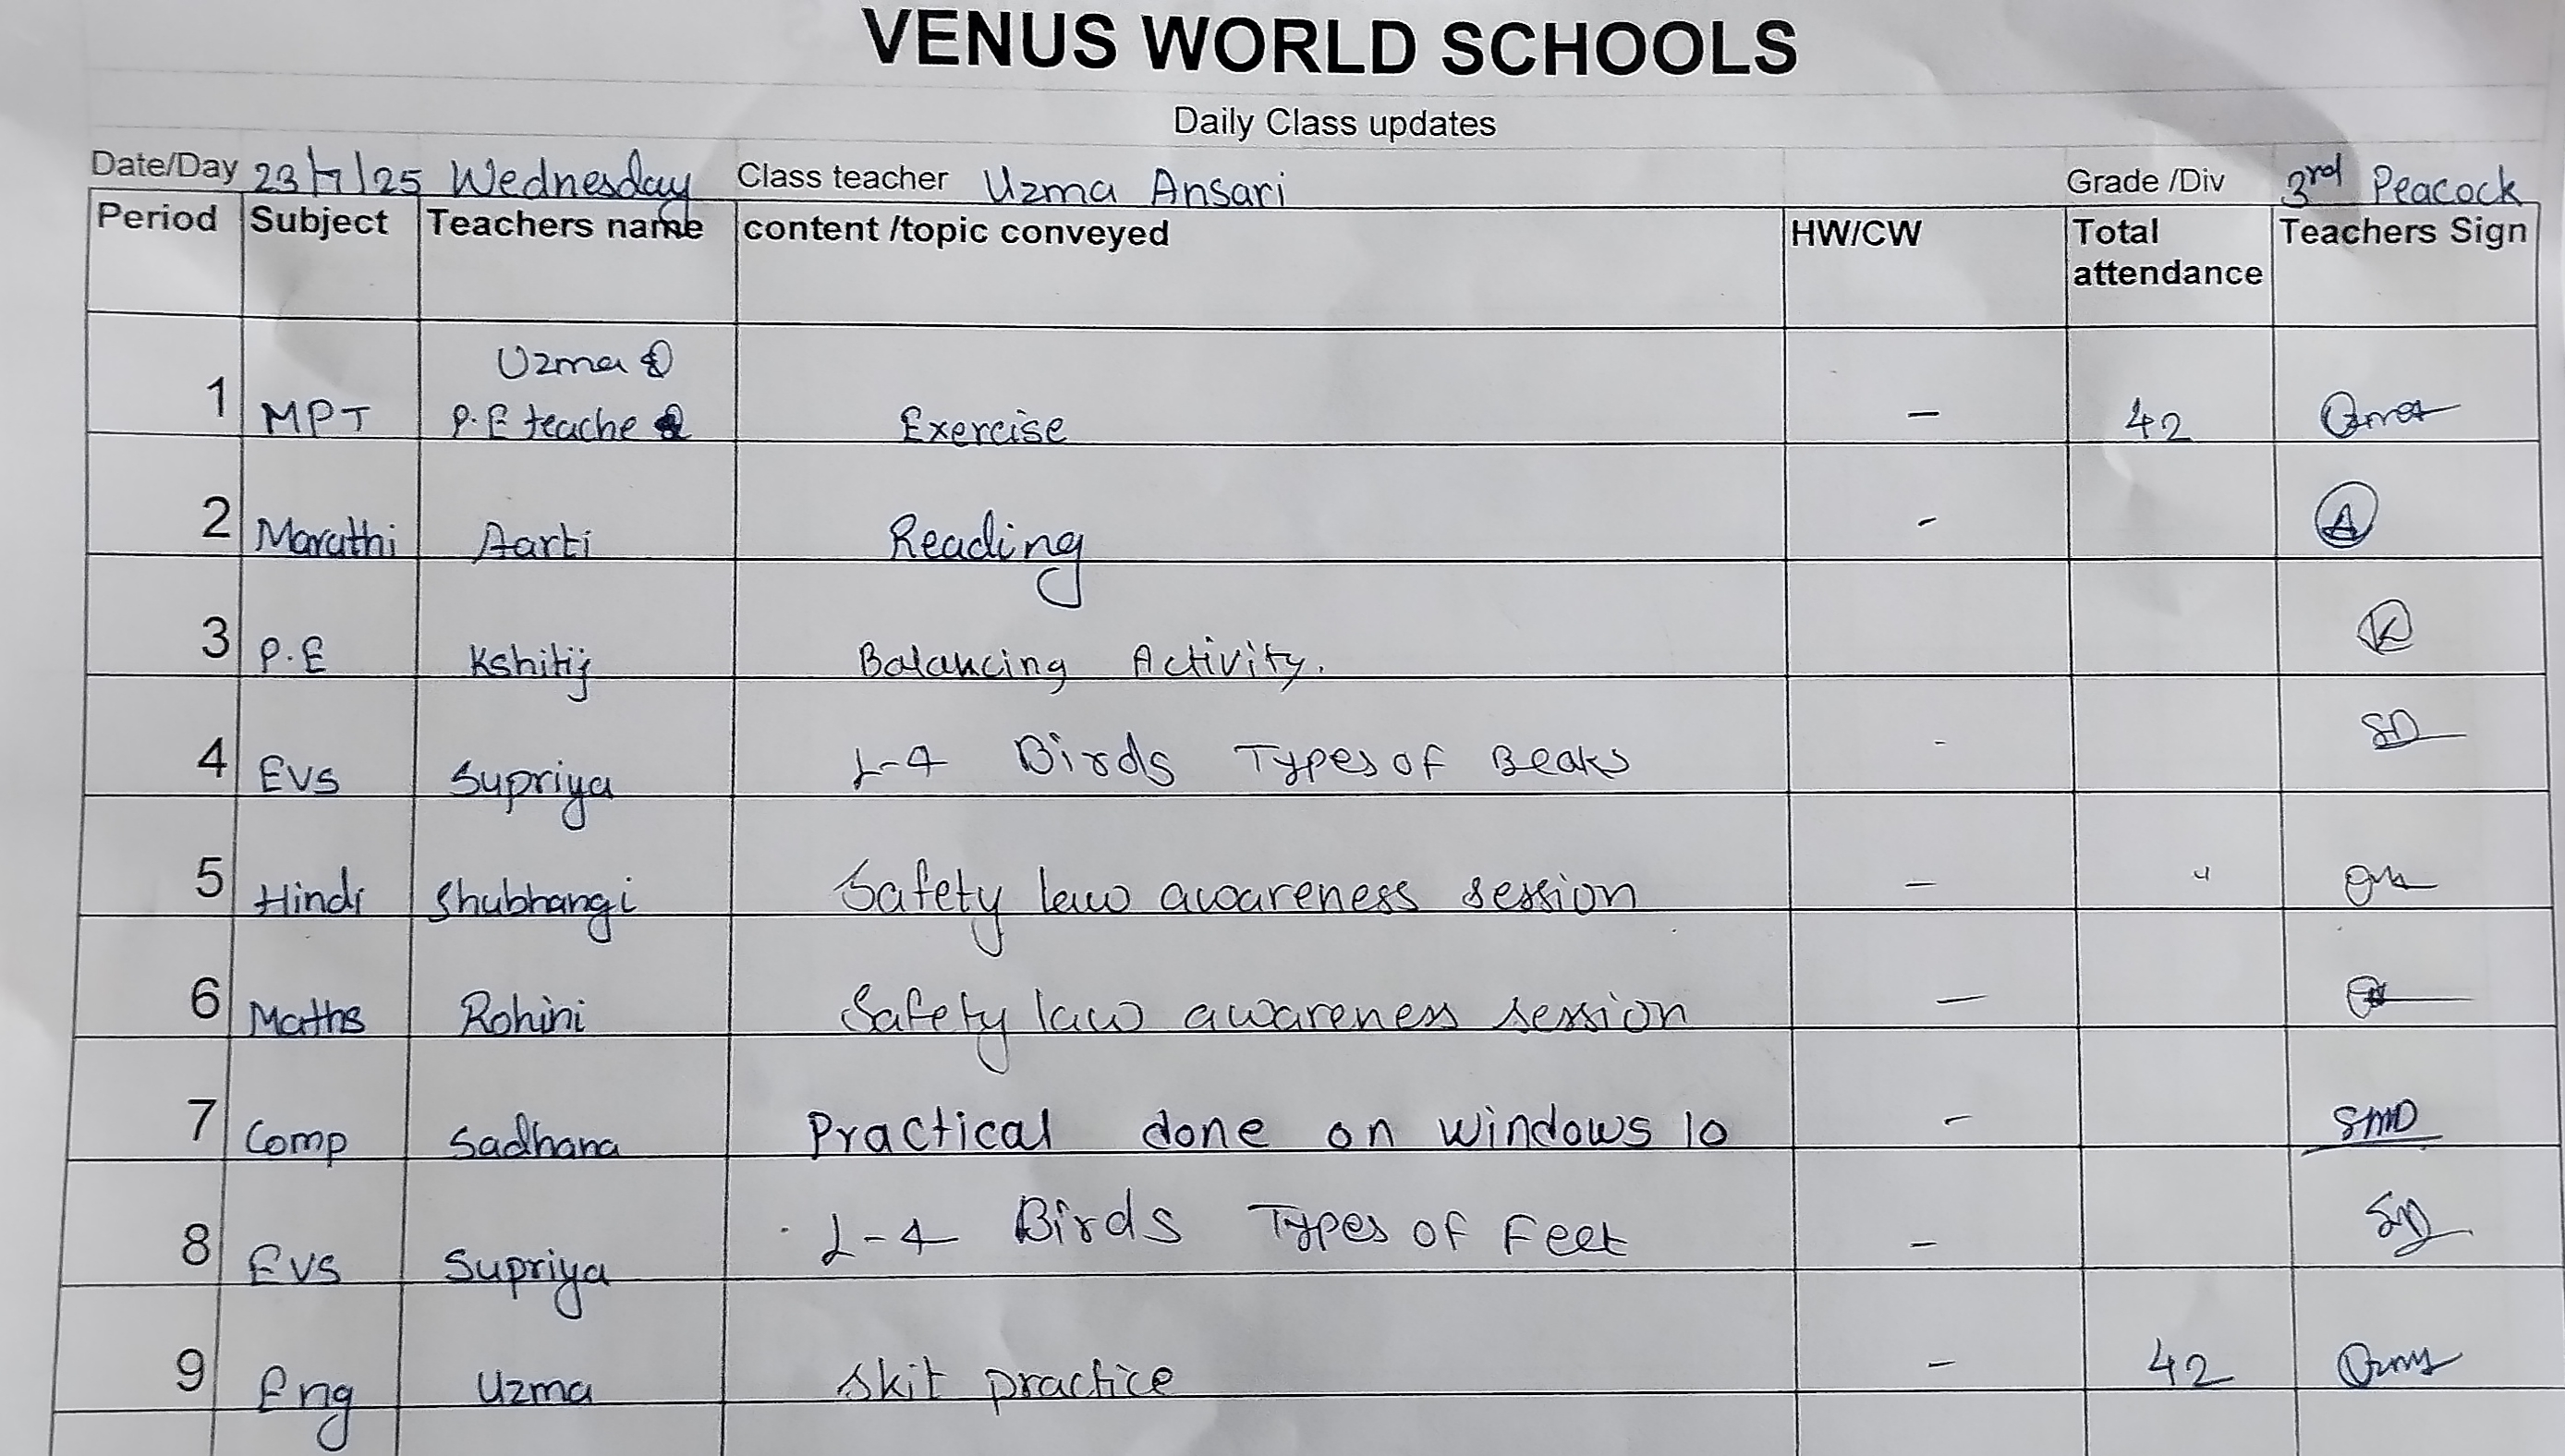 VENUS WORLD SCHOOLS
Daily Class updates
Date/Day 23/7/25 Wednesday Class teacher Uzma Ansari Grade /Div 3rd Peacock
Period Subject Teachers name content /topic conveyed HW/CW Total attendance Teachers Sign
Uzma &
1 MPT P.E teache Exercise — 42
2 Marathi Aarti Reading - A
3 P.E Kshitij Balancing Activity. K
4 EVS Supriya L-4 Birds Types of Beaks - SD
5 Hindi Shubhangi Safety law awareness session —
6 Maths Rohini Safety law awareness session —
7 Comp Sadhana Practical done on windows 10 - SMD
8 EVS Supriya L-4 Birds Types of Feet — SD
9 Eng Uzma Skit practice - 42